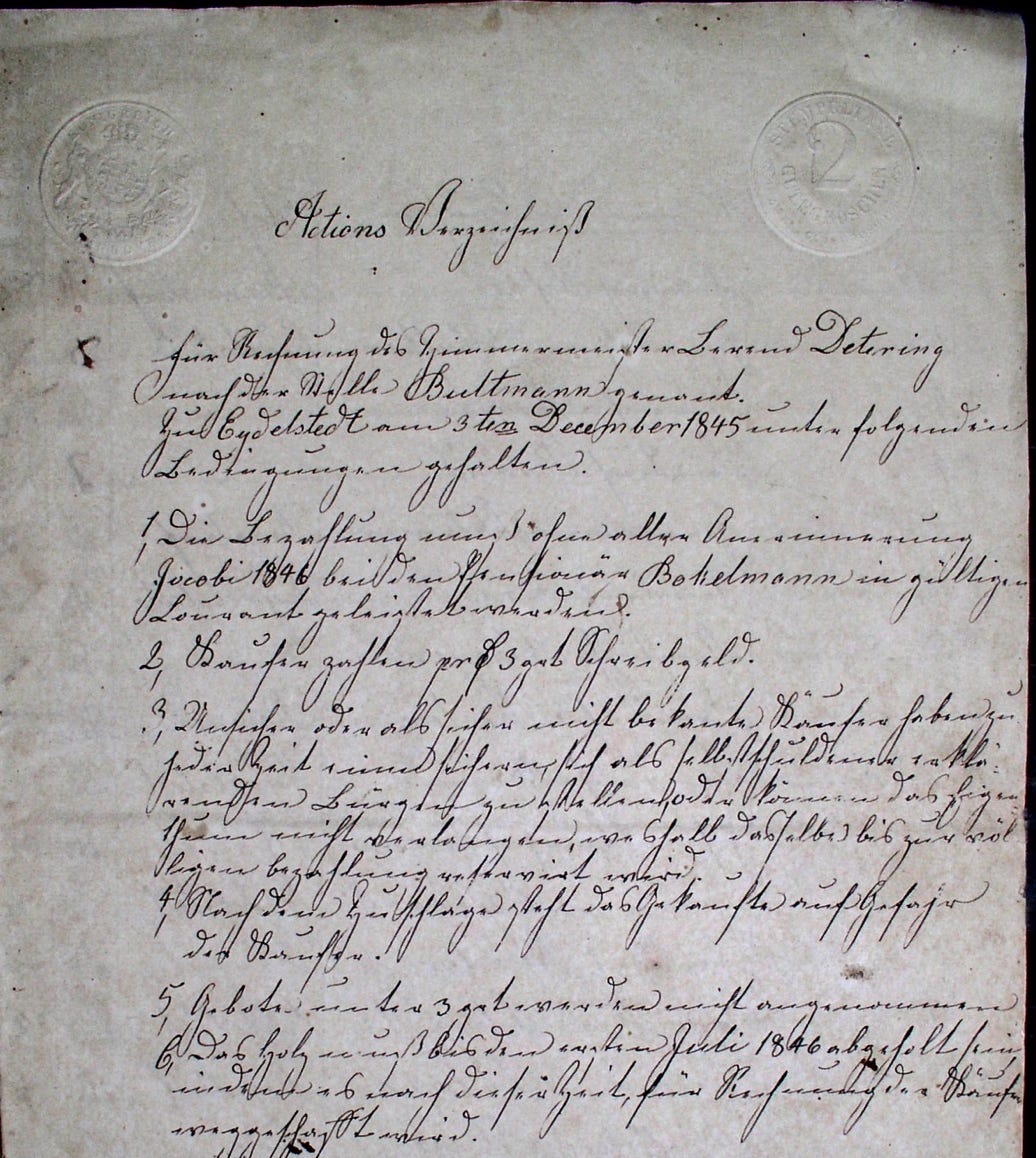 STEMPELKLASSE
2
GUTEGROSCHEN
Actions Verzeichniß
für Rechnung des Zimmermeister Berend Detering
nach der Stelle Bultmann genant.
Zu Eydelstedt am 3ten December 1845 unter folgenden
Bedingungen gehalten.
1, Die Bezahlung muß ohne aller Anerinnerung
Jacobi 1846 bei den Pensionär Bokelmann in gültigen
Courant geleistet werden.
2, Kaufer zahlen pr 3 ggt Schreibgeld.
3, Unsicher oder als sicher nicht bekante Käufer haben zu
jeder Zeit einen sichern, sich als selbstschuldener erklä-
renden Bürgen zu stellen, oder können das Eigen
thum nicht verlangen, weshalb dasselbe bis zur völ
ligen bezahlung reservirt wird.
4, Nach dem Zuschlage steht das Gekaufte auf Gefahr
der Kaufer.
5, Gebote unter 3 ggt werden nicht angenommen
6, Das Holz muß bis den ersten Juli 1846 abgeholt sein
indem es nach dieser Zeit, für Rechnung der Käufer
weggeschafft wird.